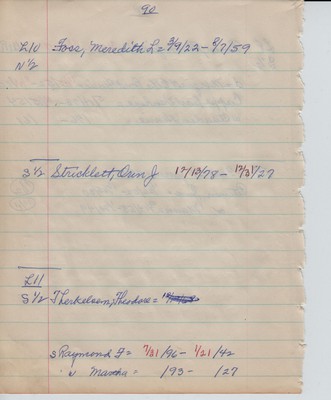 90
L10 Foss, Meredith L = 3/9/22 - 8/7/59
N 1/2
S 1/2 Stricklett, Orin J 12/13/78 - 12/31/27
L11
S 1/2 Therkelsen, Theodore =
S Raymond F = 7/31/96 - 1/21/42
" " Martha = /93 - /27